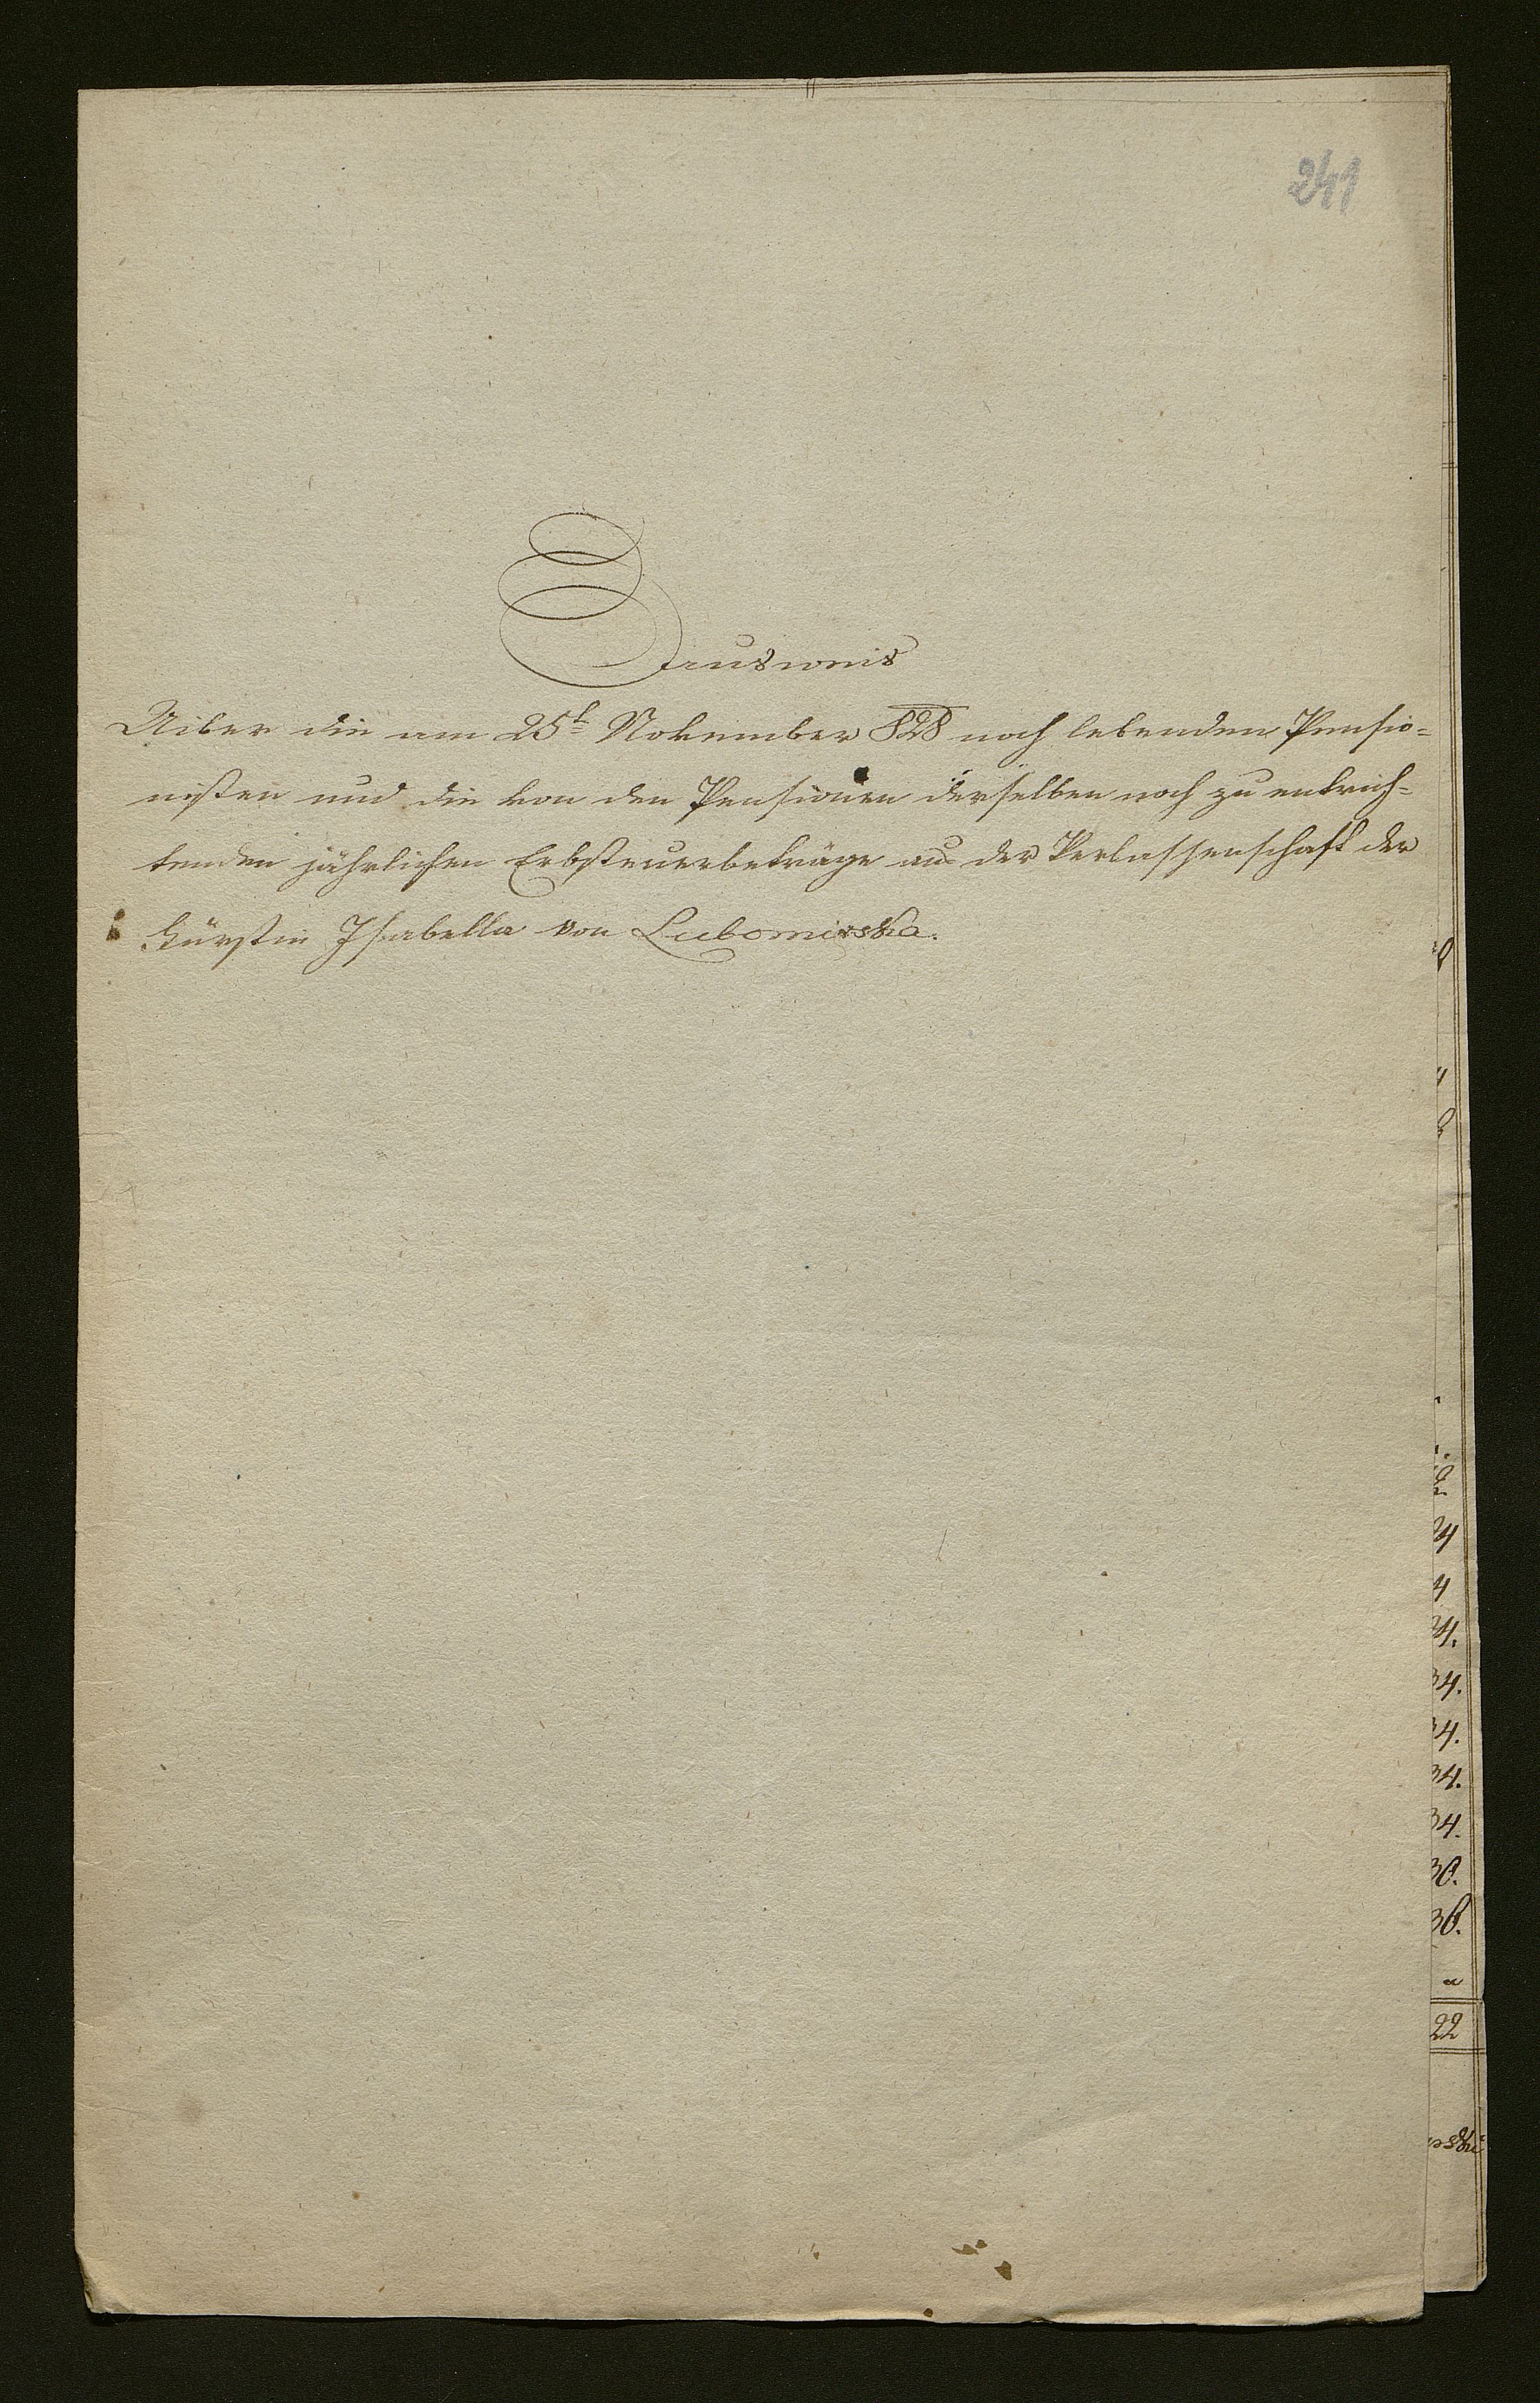 241
Ausweis
Uiber die am 25t November 828 noch lebenden Pensio=
nisten und die von den Pensionen derselben noch zu entrich=
tenden jährlichen Erbsteuerbeträge aus der Verlassenschaft der
Fürstin Isabella von Lubomirska.
24
4
24.
34.
34.
34.
34.
30.
36.
22